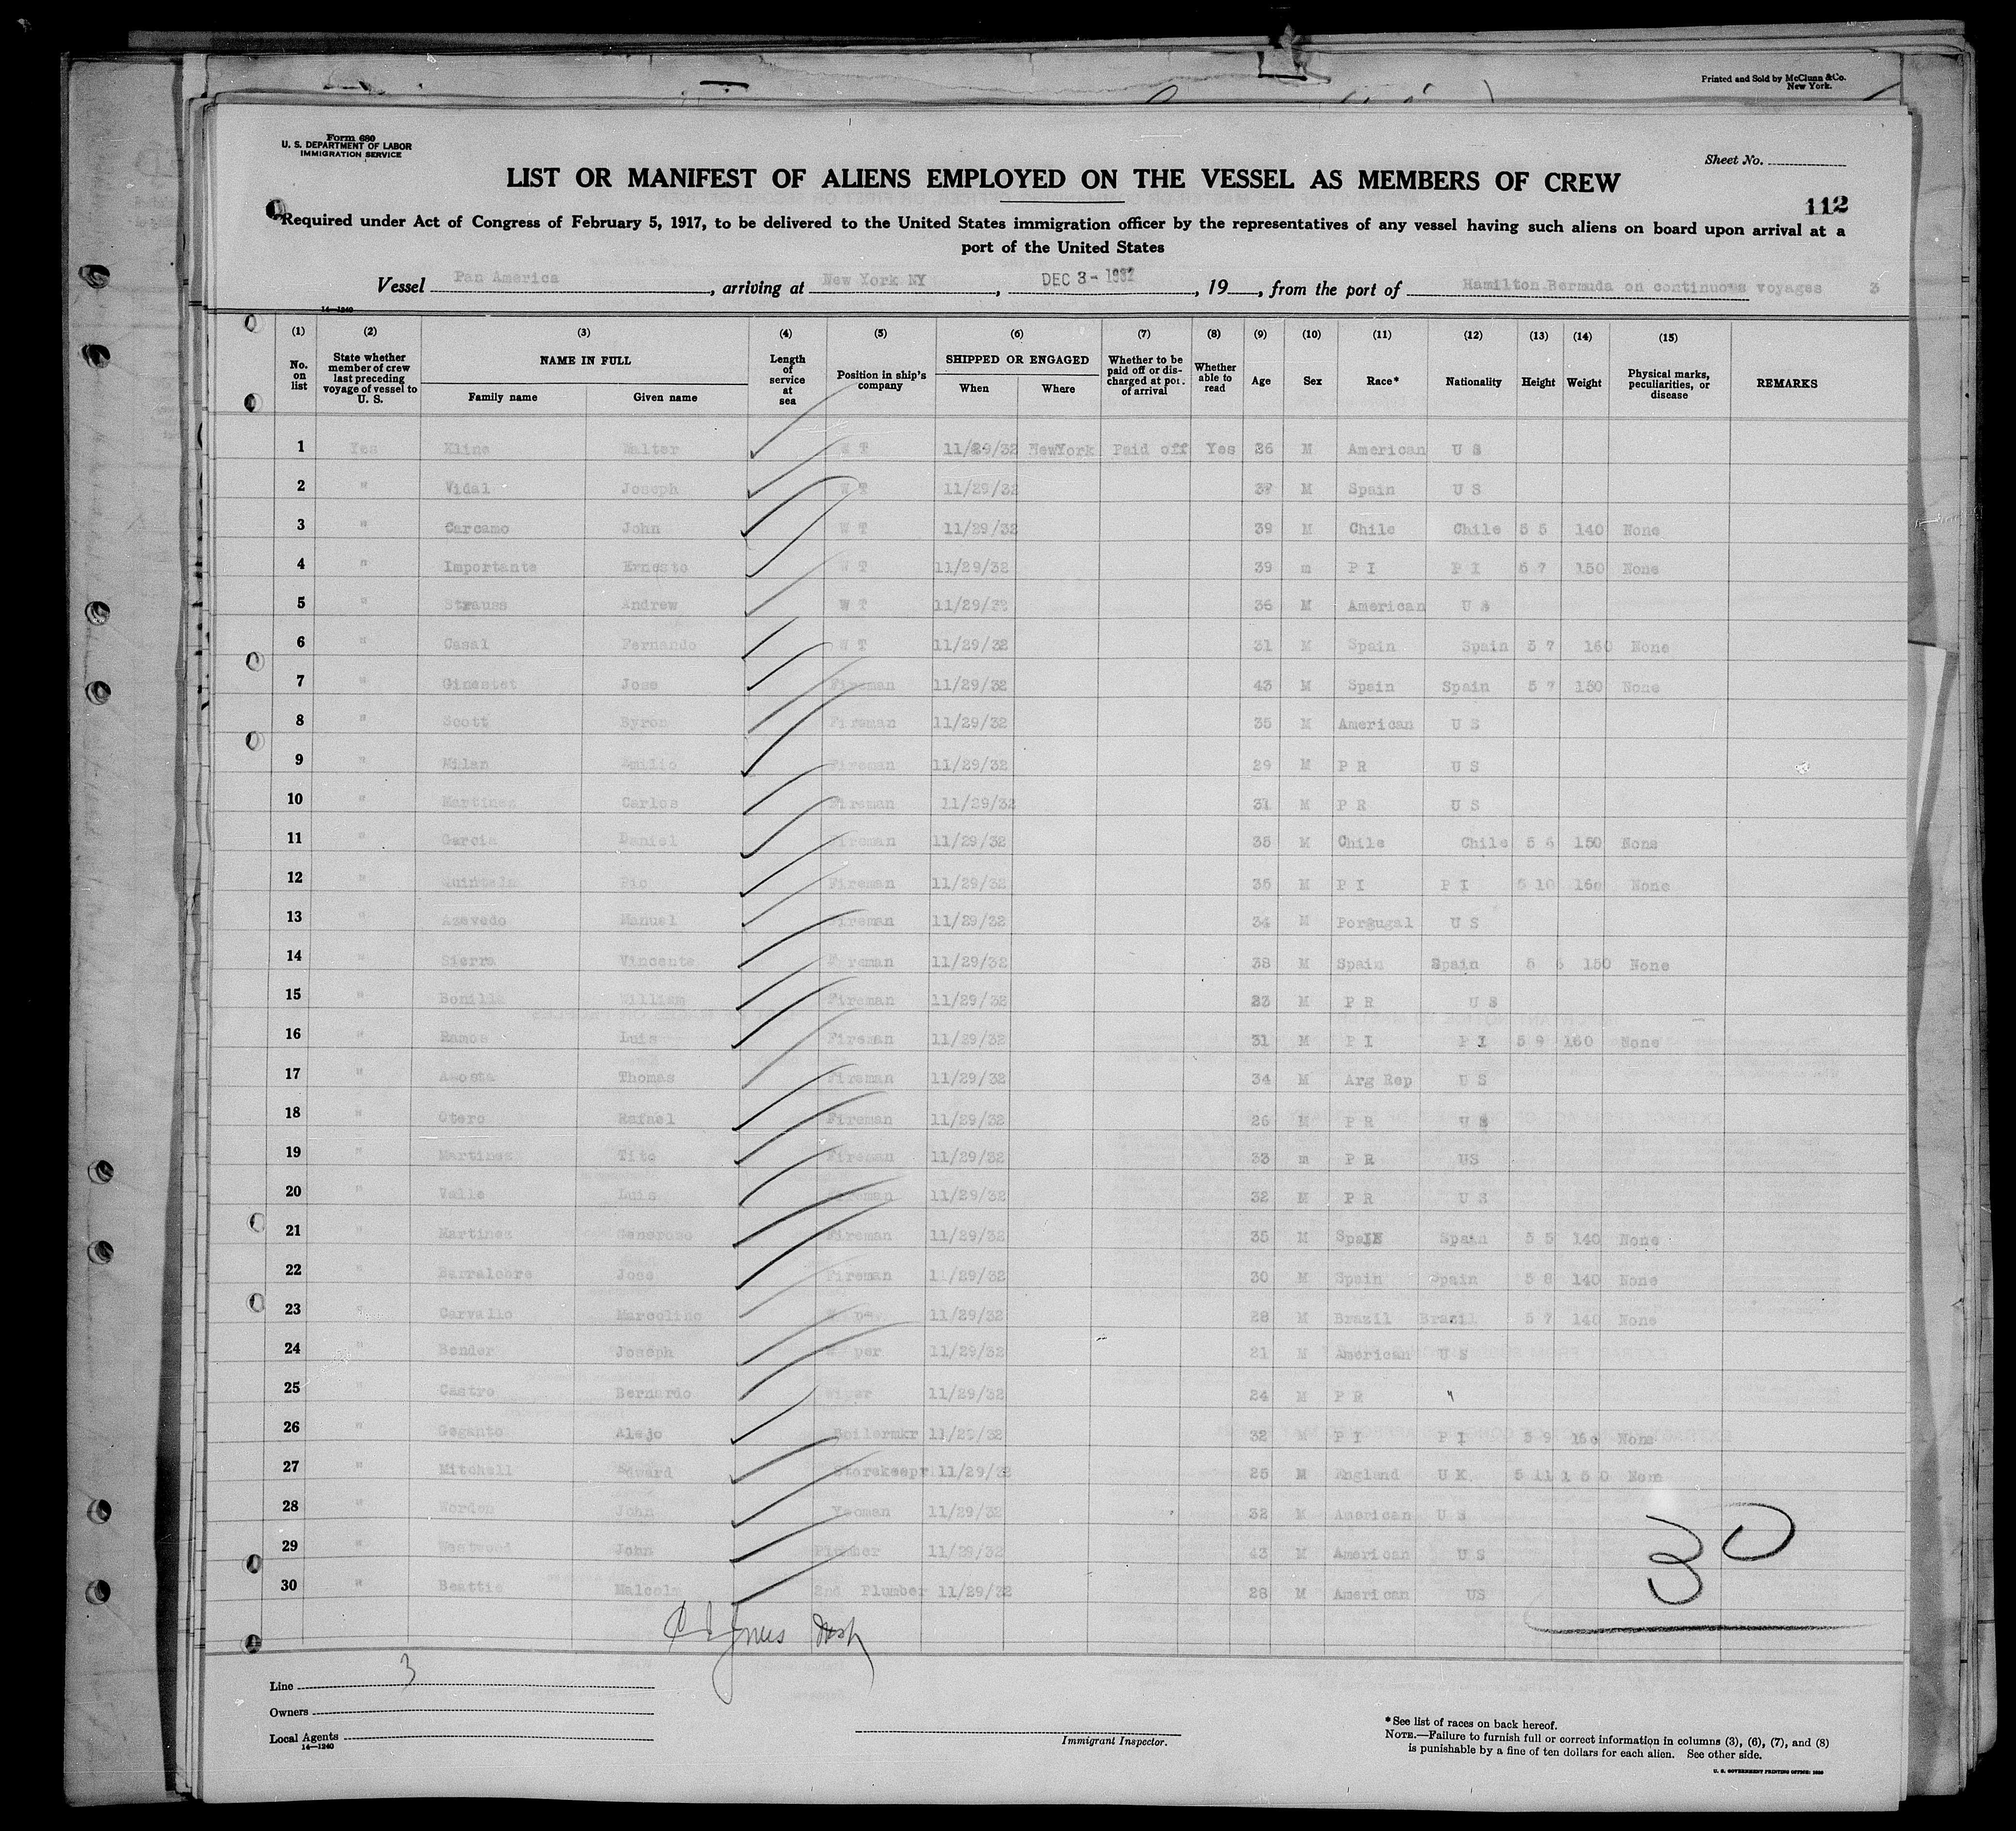 Printed and Sold by McClunn & Co.
New York.
Form 680
U. S. DEPARTMENT OF LABOR
IMMIGRATION SERVICE
Sheet No.
LIST OR MANIFEST OF ALIENS EMPLOYED ON THE VESSEL AS MEMBERS OF CREW
112
Required under Act of Congress of February 5, 1917, to be delivered to the United States immigration officer by the representatives of any vessel having such aliens on board upon arrival at a
port of the United States
Vessel Pan America, arriving at New York NY, DEC 3 - 1932, 19, from the port of Hamilton Bermuda on continuous voyages 3
14—1240
(1) (2) (3) (4) (5) (6) (7) (8) (9) (10) (11) (12) (13) (14) (15)
No. on list State whether member of crew last preceding voyage of vessel to U. S. NAME IN FULL Family name Given name Length of service at sea Position in ship's company SHIPPED OR ENGAGED When Where Whether to be paid off or discharged at port of arrival Whether able to read Age Sex Race* Nationality Height Weight Physical marks, peculiarities, or disease REMARKS
1 Yes Kline Walter W T 11/29/32 NewYork Paid off Yes 26 M American U S
2 " Vidal Joseph W T 11/29/32 37 M Spain U S
3 " Carcamo John W T 11/29/32 39 M Chile Chile 5 5 140 None
4 " Importante Ernesto W T 11/29/32 39 m P I P I 5 7 150 None
5 " Strauss Andrew W T 11/29/32 36 M American U S
6 " Casal Fernando W T 11/29/32 31 M Spain Spain 5 7 160 None
7 " Ginestet Jose Fireman 11/29/32 43 M Spain Spain 5 7 150 None
8 " Scott Byron Fireman 11/29/32 35 M American U S
9 " Milan Emilio Fireman 11/29/32 29 M P R U S
10 " Martinez Carlos Fireman 11/29/32 31 M P R U S
11 " Garcia Daniel Fireman 11/29/32 35 M Chile Chile 5 6 150 None
12 " Quintela Pio Fireman 11/29/32 35 M P I P I 5 10 160 None
13 " Azevedo Manuel Fireman 11/29/32 34 M Porgugal U S
14 " Sierra Vincente Fireman 11/29/32 38 M Spain Spain 5 6 150 None
15 " Bonilla William Fireman 11/29/32 23 M P R U S
16 " Ramos Luis Fireman 11/29/32 31 M P I P I 5 9 160 None
17 " Acosta Thomas Fireman 11/29/32 34 M Arg Rep U S
18 " Otero Rafael Fireman 11/29/32 26 M P R U S
19 " Martinez Tito Fireman 11/29/32 33 m P R US
20 " Valle Luis Fireman 11/29/32 32 M P R U S
21 " Martinez Generoso Fireman 11/29/32 35 M Spain Spain 5 5 140 None
22 " Barralobre Jose Fireman 11/29/32 30 M Spain Spain 5 8 140 None
23 " Carvallo Marcolino Wiper 11/29/32 28 M Brazil Brazil 5 7 140 None
24 " Bender Joseph Wiper 11/29/32 21 M American U S
25 " Castro Bernardo Wiper 11/29/32 24 M P R "
26 " Geganto Alejo Boilermkr 11/29/32 32 M P I P I 5 9 160 None
27 " Mitchell Edward Storekeepr 11/29/32 25 M England U K 5 11 150 None
28 " Worden John Yeoman 11/29/32 32 M American U S
29 " Westwood John Plumber 11/29/32 43 M American U S
30 " Beattie Malcolm 2nd Plumber 11/29/32 28 M American US
30
Line 3
Owners
Local Agents
14—1240
Immigrant Inspector.
*See list of races on back hereof.
NOTE.—Failure to furnish full or correct information in columns (3), (6), (7), and (8)
is punishable by a fine of ten dollars for each alien. See other side.
U. S. GOVERNMENT PRINTING OFFICE: